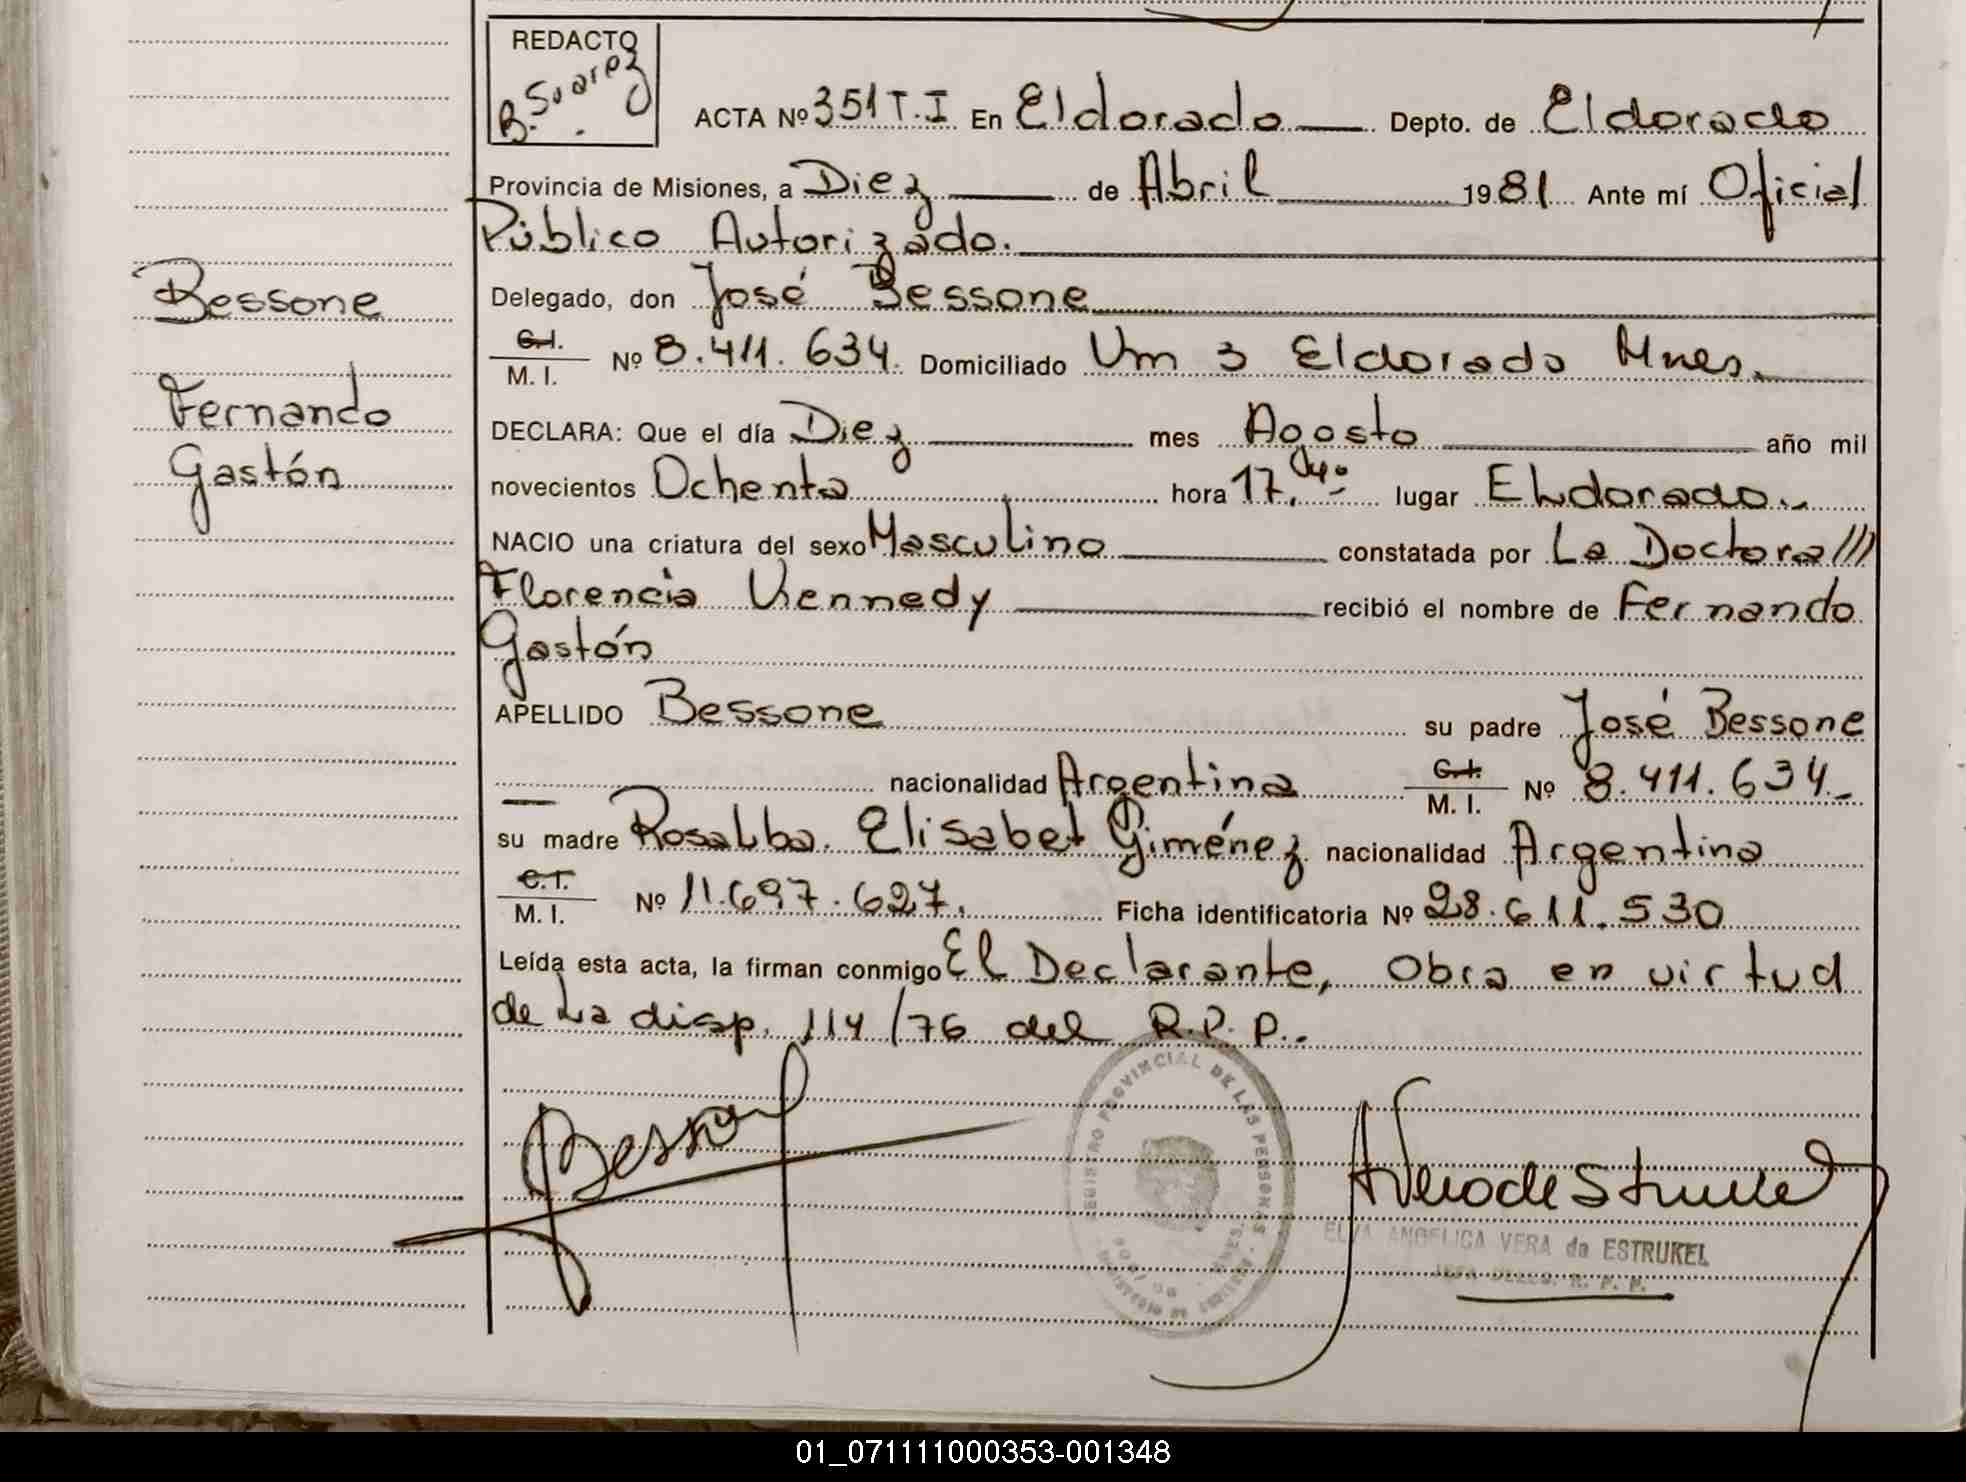 REDACTO
B. Suarez
ACTA Nº 351 T.I En Eldorado Depto. de Eldorado
Provincia de Misiones, a Diez de Abril 1981 Ante mí Oficial
Público Autorizado.
Delegado, don José Bessone
C.I. M. I. Nº 8.411.634. Domiciliado Km 3 Eldorado Mnes.
DECLARA: Que el día Diez mes Agosto año mil
novecientos Ochenta hora 17, lugar Eldorado
NACIO una criatura del sexo Masculino constatada por La Doctora ///
Florencia Kennedy recibió el nombre de Fernando
Gastón
APELLIDO Bessone su padre José Bessone
nacionalidad Argentina C.I. M. I. Nº 8.411.634
su madre Rosalba Elisabet Giménez nacionalidad Argentina
C.I. M. I. Nº 11.697.627. Ficha identificatoria Nº 28.611.530
Leída esta acta, la firman conmigo El Declarante, Obra en virtud
de La disp. 114/76 del R.P.P..
Bessone
Fernando
Gastón
REGISTRO PROVINCIAL DE LAS PERSONAS
ELVA ANGELICA VERA de ESTRUKEL
R. P. P.
01_071111000353-001348